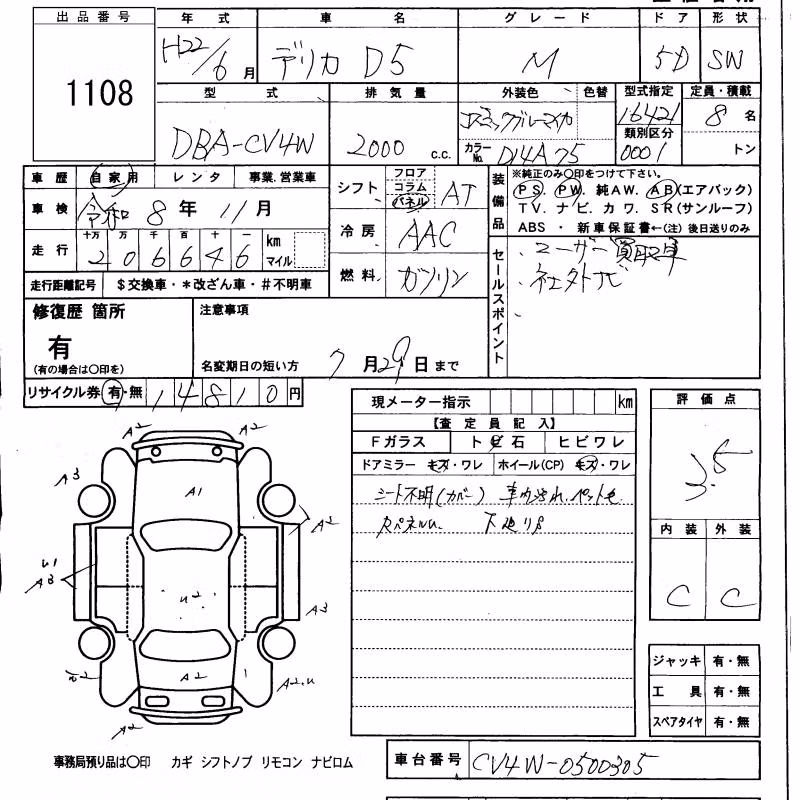 出品番号 年式 車名 グレード ドア 形状
1108 H22/6月 デリカ D5 M 5D SW
型式 排気量 外装色 色替 型式指定 定員・積載
DBA-CV4W 2000 c.c. 16421 8名
カラーNo. D14A75 類別区分 0001 トン
車歴 自家用 レンタ 事業.営業車
車検 令和 8年 11月
走行 十万 万 千 百 十 一
206646 km マイル
走行距離記号 $交換車・*改ざん車・#不明車
シフト フロア コラム パネル AT
冷房 AAC
燃料 ガソリン
装備品 ※純正のみ〇印をつけて下さい。
PS PW 純AW. AB(エアバック)
TV. ナビ. カワ. SR(サンルーフ)
ABS ・ 新車保証書←(注)後日送りのみ
セールスポイント
・ユーザー買取車
・社外ナビ
・
修復歴 箇所
有
(有の場合は〇印を)
注意事項
名変期日の短い方 7月29日まで
リサイクル券 有・無 14810円
現メーター指示 km
【査定員記入】
Fガラス トビ石 ヒビワレ
ドアミラー キズ・ワレ ホイール(CP) キズ・ワレ
シート不明(カバー) 車内汚れ.ペット毛
下廻り
評価点
3.5
内装 外装
C C
A2 A2
A3 A1
A2
U1
A3
U2 A3
A2
A2.U
A2
ジャッキ 有・無
工具 有・無
スペアタイヤ 有・無
事務局預り品は〇印 カギ シフトノブ リモコン ナビロム
車台番号 CV4W-0500305